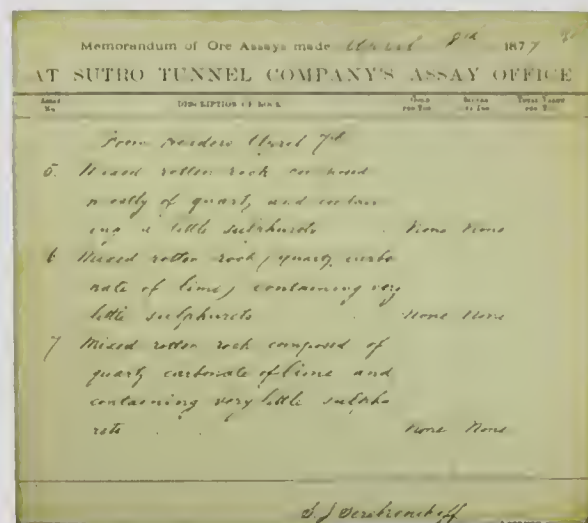 Memorandum of Ore Assays made April 8th 1877
AT SUTRO TUNNEL COMPANY'S ASSAY OFFICE
Assay No. DESCRIPTION OF ROCK Gold per Ton Silver per Ton Total Value per Ton
From headers April 7th
5. Mixed rotten rock composed
mostly of quartz and contain
ing a little sulphurets . None None
6 Mixed rotten rock, quartz carbo
nate of lime, containing very
little sulphurets . None None
7 Mixed rotten rock composed of
quartz carbonate of lime and
containing very little sulphu
rets . . None None